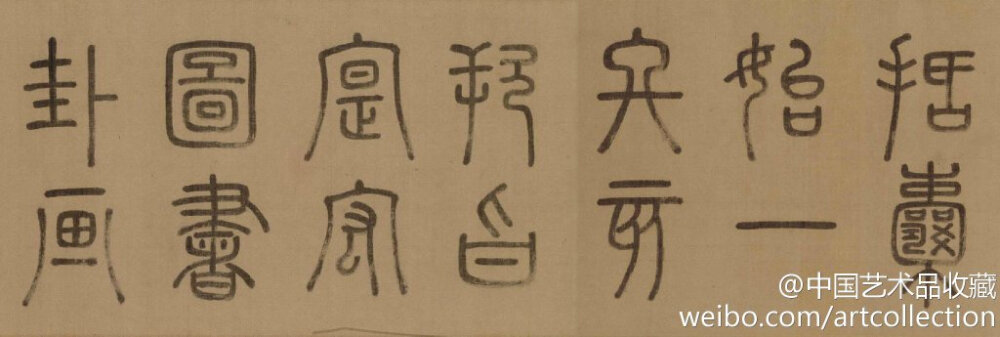 括囊
始一
亥
旨
寔宏
圖書
卦畫
@中国艺术品收藏
weibo.com/artcollection